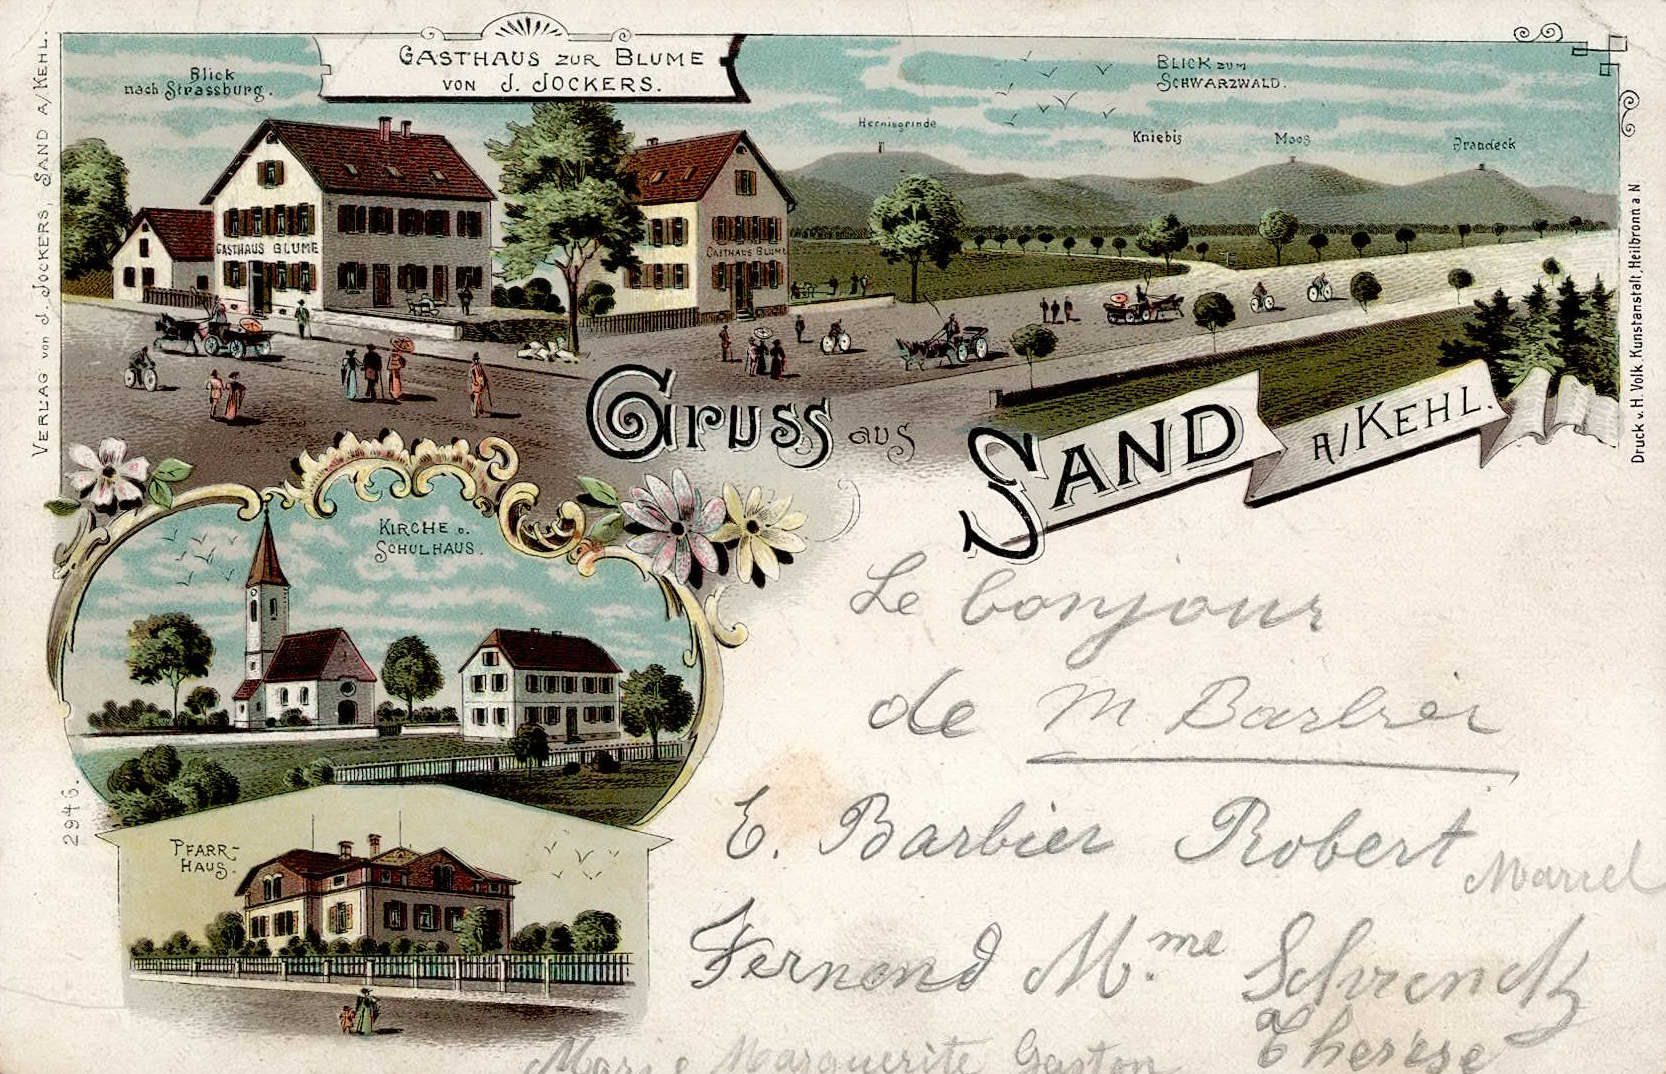 GASTHAUS ZUR BLUME
VON J. JOCKERS.
Blick
nach Strassburg.
BLICK ZUM
SCHWARZWALD.
Hernisgrinde
Kniebis
Moos
Brandeck
GASTHAUS BLUME
GASTHAUS BLUME
VERLAG von J. JOCKERS, SAND A/KEHL.
Druck v. H. Volk, Kunstanstalt, Heilbronn a N
GRUSS aus
SAND
A/KEHL.
KIRCHE u.
SCHULHAUS.
PFARR-
HAUS.
2946.
Le bonjour
de M Barbier
E. Barbier Robert
Marcel
Fernand M.me Schrenck
Thérèse
Marie Marguerite Gaston